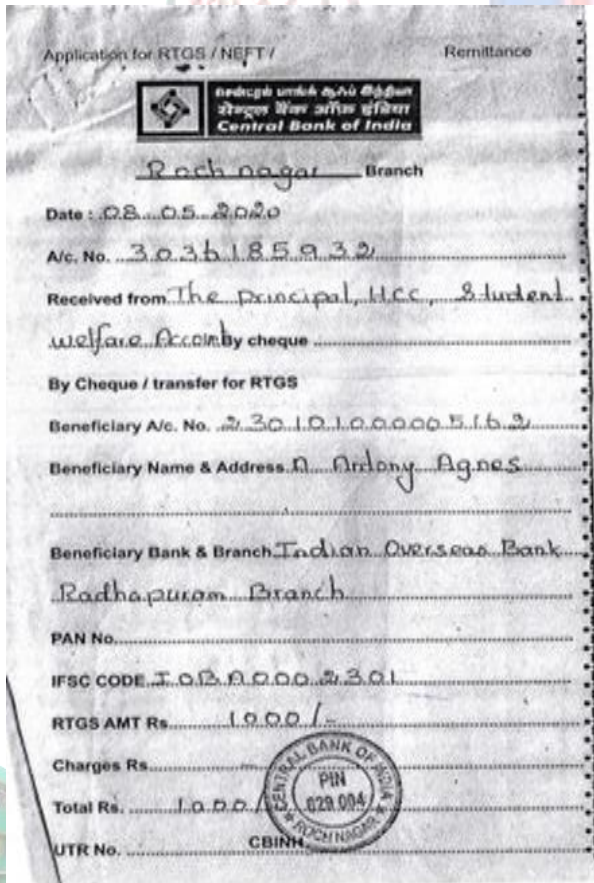 Application for RTGS / NEFT / Remittance
சென்ட்ரல் பாங்க் ஆஃப் இந்தியா
सेन्ट्रल बैंक ऑफ इंडिया
Central Bank of India
Roch nagar Branch
Date : 08.05.2020
A/c. No. 3036185932
Received from The principal, HCC, Student
welfare Accoint By cheque
By Cheque / transfer for RTGS
Beneficiary A/c. No. 230101000005162
Beneficiary Name & Address A Antony Agnes
Beneficiary Bank & Branch Indian Overseas Bank
Radhapuram Branch
PAN No.
IFSC CODE IOBA0002301
RTGS AMT Rs 1000/-
Charges Rs. -
Total Rs. 1000/
CENTRAL BANK OF INDIA
PIN
029 004
ROCH NAGAR
UTR No. CBINH